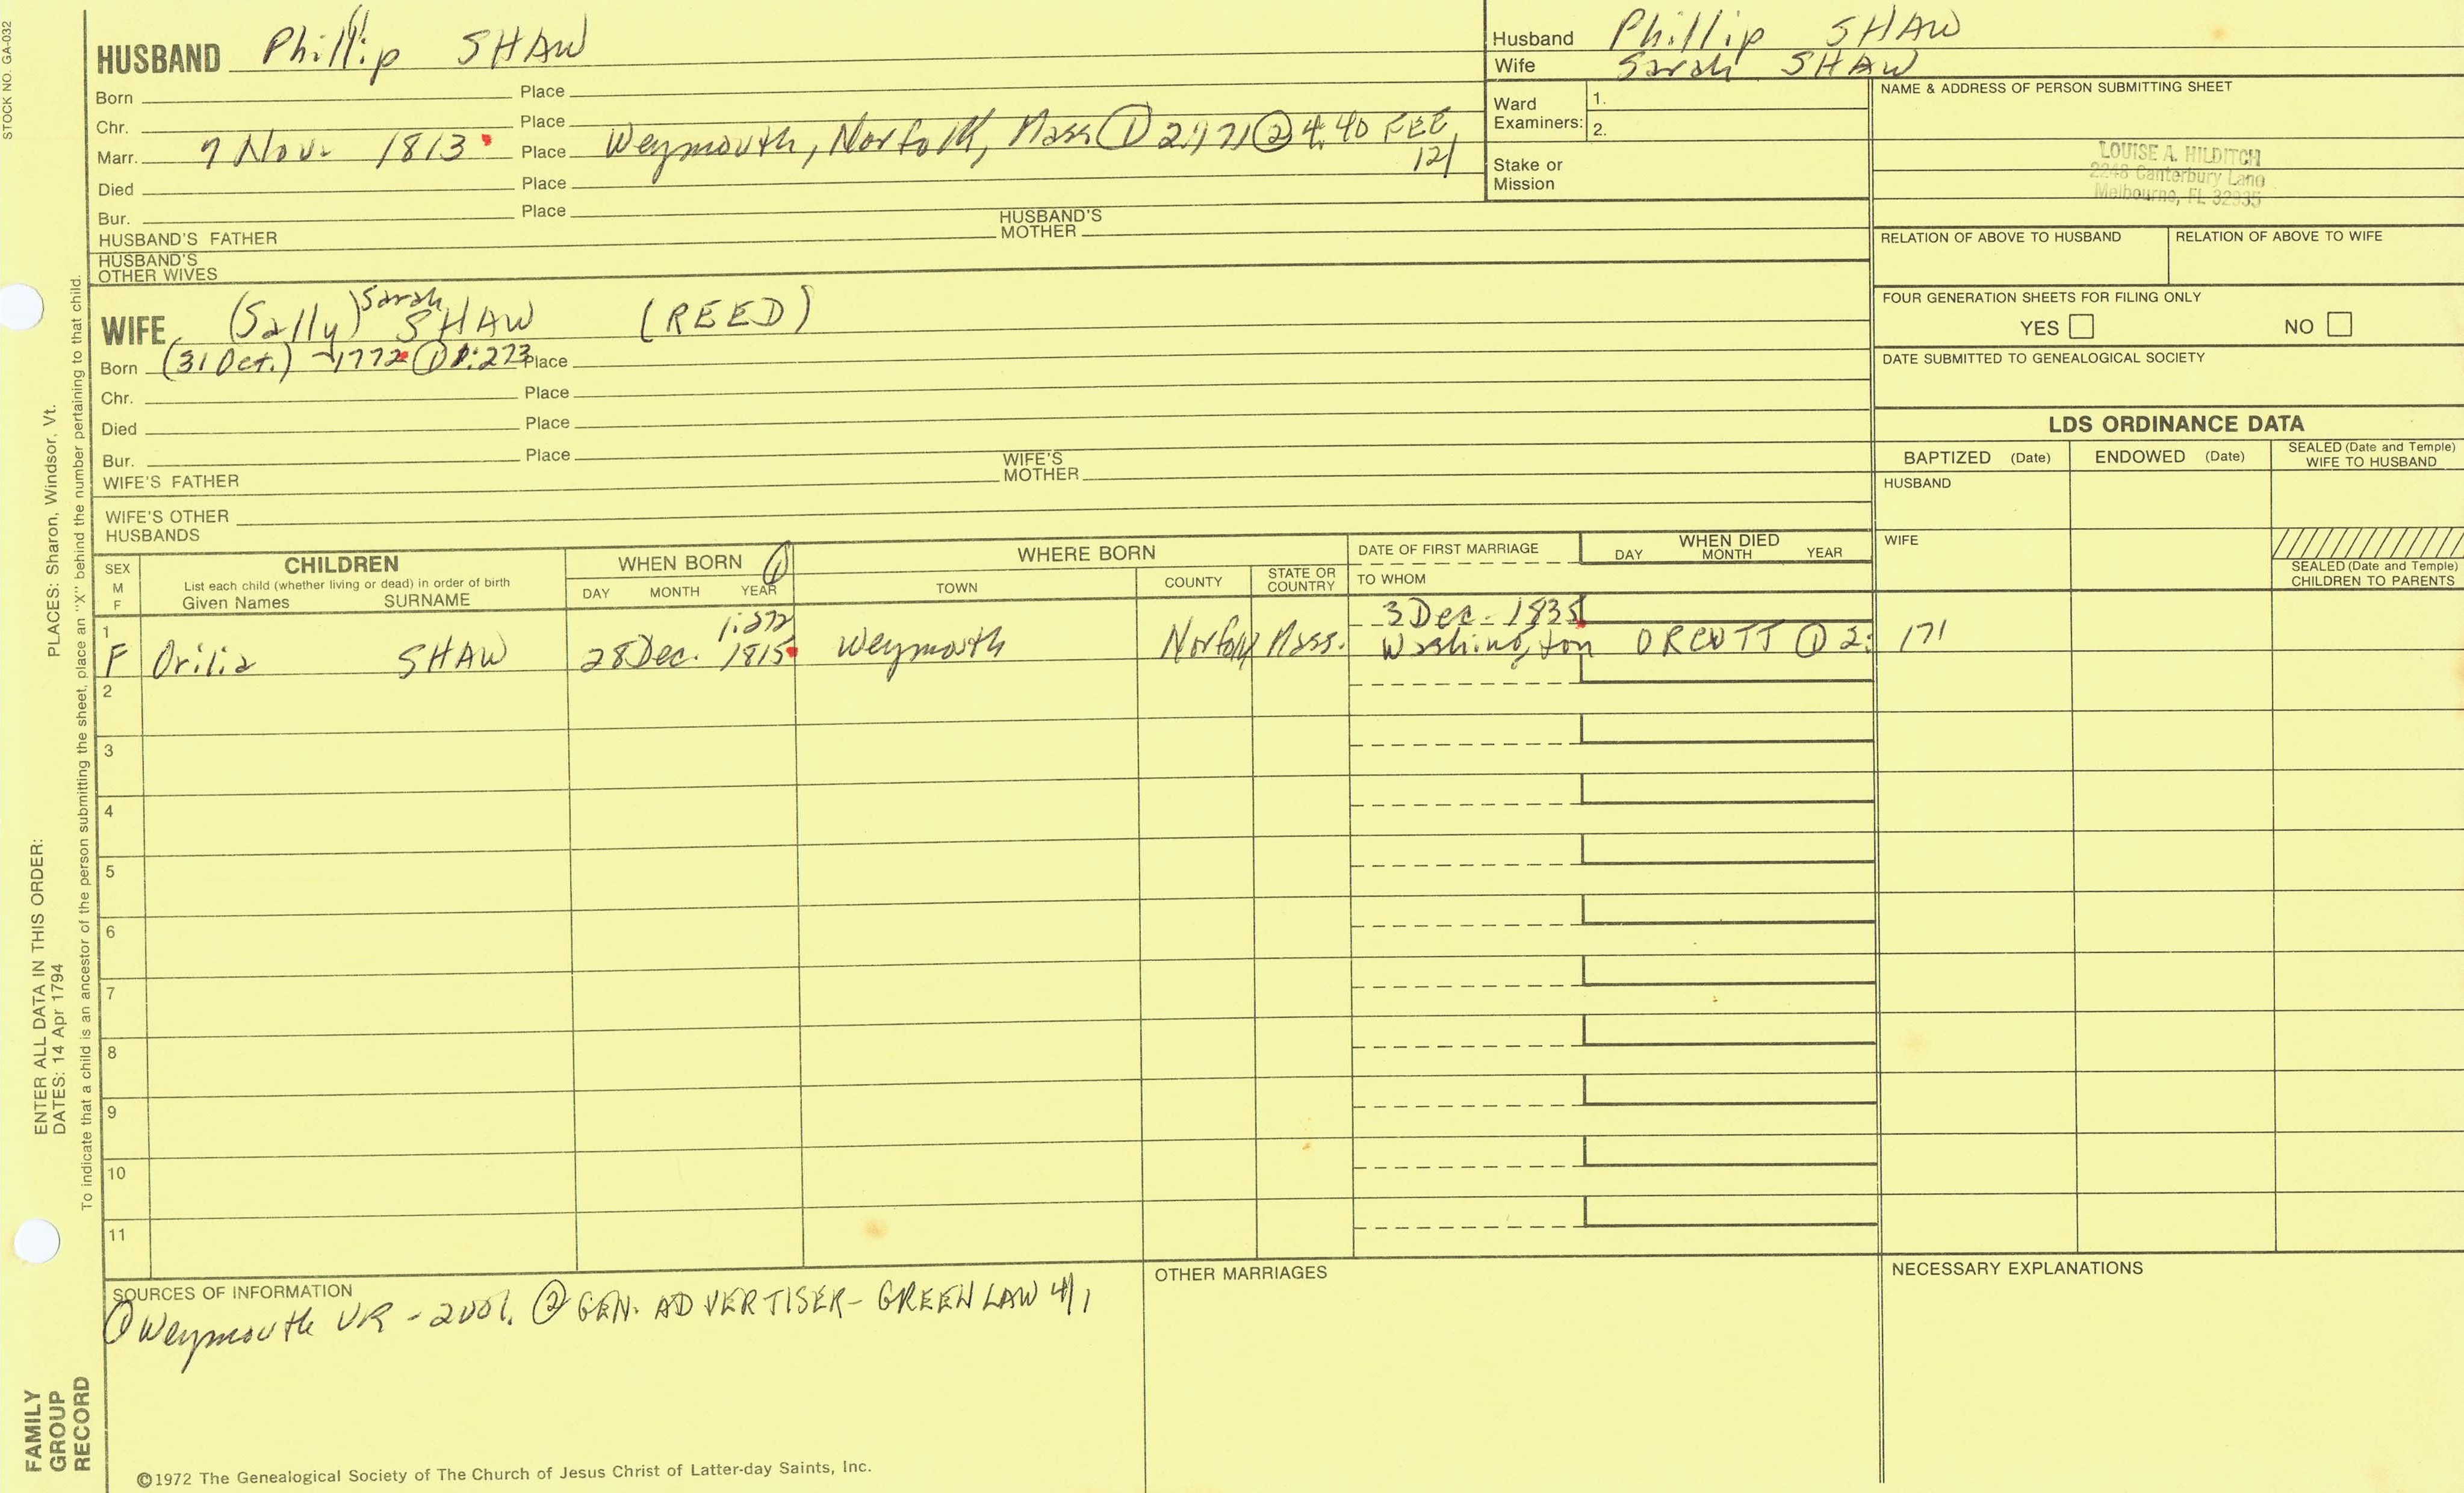 STOCK NO. GA-032
HUSBAND Phillip SHAW
Born Place
Chr. Place
Marr. 7 Nov. 1813 Place Weymouth, Norfolk, Mass ① 2:171 ② 4:40 FEE
121
Died Place
Bur. Place
HUSBAND'S FATHER HUSBAND'S MOTHER
HUSBAND'S OTHER WIVES
WIFE (Sally) Sarah SHAW (REED)
Born (31 Oct.) 1772 ① 1:273 Place
Chr. Place
Died Place
Bur. Place
WIFE'S FATHER WIFE'S MOTHER
WIFE'S OTHER HUSBANDS
Husband Phillip SHAW
Wife Sarah SHAW
Ward Examiners: 1.
2.
Stake or Mission
NAME & ADDRESS OF PERSON SUBMITTING SHEET
LOUISE A. HILDITCH
2248 Canterbury Lane
Melbourne, FL 32935
RELATION OF ABOVE TO HUSBAND RELATION OF ABOVE TO WIFE
FOUR GENERATION SHEETS FOR FILING ONLY
YES NO
DATE SUBMITTED TO GENEALOGICAL SOCIETY
LDS ORDINANCE DATA
BAPTIZED (Date) ENDOWED (Date) SEALED (Date and Temple) WIFE TO HUSBAND
HUSBAND
WIFE
SEALED (Date and Temple) CHILDREN TO PARENTS
SEX M F
CHILDREN
List each child (whether living or dead) in order of birth
Given Names SURNAME
WHEN BORN ①
DAY MONTH YEAR
WHERE BORN
TOWN COUNTY STATE OR COUNTRY
DATE OF FIRST MARRIAGE
TO WHOM
WHEN DIED
DAY MONTH YEAR
1 3 Dec. 1835
F Orilia SHAW 28 Dec. 1815 Weymouth Norfolk Mass. Washington ORCUTT ① 2: 171
2
3
4
5
6
7
8
9
10
11
SOURCES OF INFORMATION
① Weymouth VR - 2 vol. ② GEN. ADVERTISER - GREENLAW
OTHER MARRIAGES
NECESSARY EXPLANATIONS
©1972 The Genealogical Society of The Church of Jesus Christ of Latter-day Saints, Inc.
FAMILY GROUP RECORD
ENTER ALL DATA IN THIS ORDER:
DATES: 14 Apr 1794
PLACES: Sharon, Windsor, Vt.
To indicate that a child is an ancestor of the person submitting the sheet, place an "X" behind the number pertaining to that child.